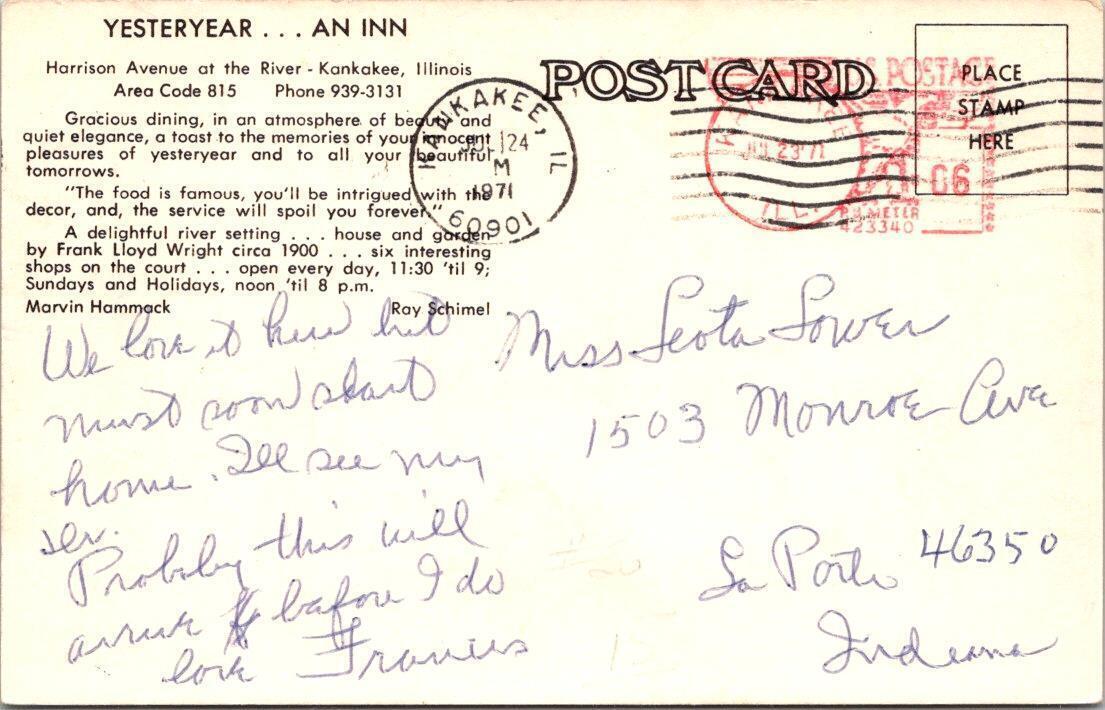 YESTERYEAR . . . AN INN
Harrison Avenue at the River - Kankakee, Illinois
Area Code 815 Phone 939-3131
Gracious dining, in an atmosphere of beauty and
quiet elegance, a toast to the memories of your innocent
pleasures of yesteryear and to all your beautiful
tomorrows.
"The food is famous, you'll be intrigued with the
decor, and, the service will spoil you forever."
A delightful river setting . . . house and garden
by Frank Lloyd Wright circa 1900 . . . six interesting
shops on the court . . . open every day, 11:30 'til 9;
Sundays and Holidays, noon 'til 8 p.m.
Marvin Hammack Ray Schimel
POST CARD
KANKAKEE, IL
JUL 24
M
1971
60901
POSTAGE
JUL 23 '71
ILL.
06
P.B. METER
423340
PLACE
STAMP
HERE
We love it here but
must soon start
home. I'll see my
Probably this will
arrive before I do
love Frances
Miss Leota Lower
1503 Monroe Ave
La Porte 46350
Indiana